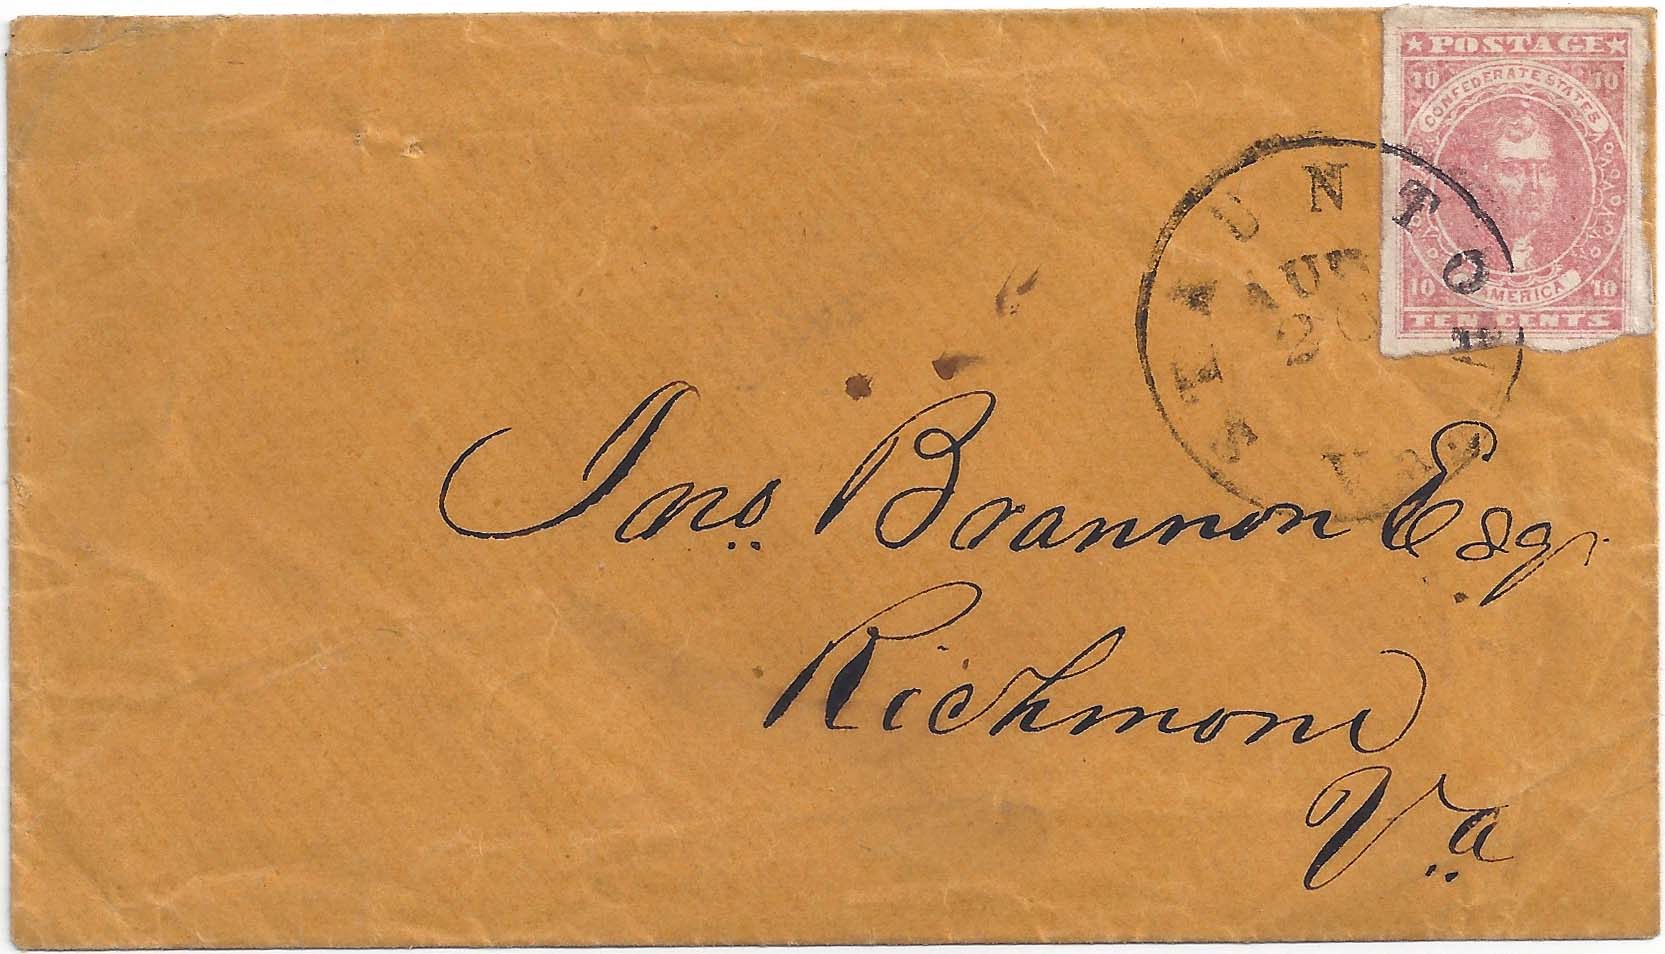 ★POSTAGE★
10 10
CONFEDERATE STATES
AMERICA
10 10
TEN CENTS
STAUNTON
AUG
20
Va.
Jno. Brannon Esq.
Richmond
Va